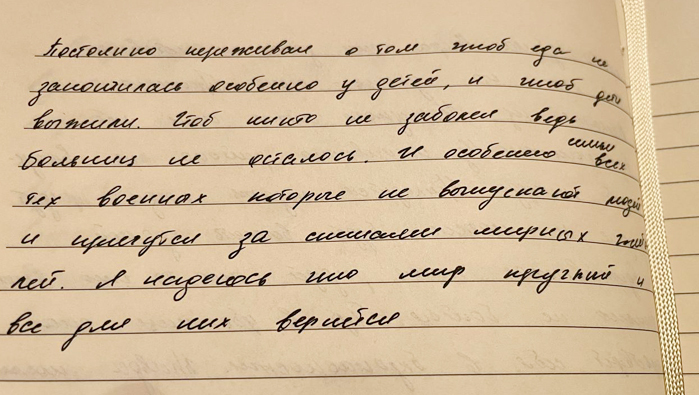 Постоянно переживаю о том чтоб еда не
закончилась особенно у детей, и чтоб дети
выжили. Чтоб никто не заболел ведь
больниц не осталось. И особенно семьи всех
тех военных которые не выпускают людей
и прячутся за спинами мирных жите
лей. Я надеюсь что мир круглый и
все для них вернётся